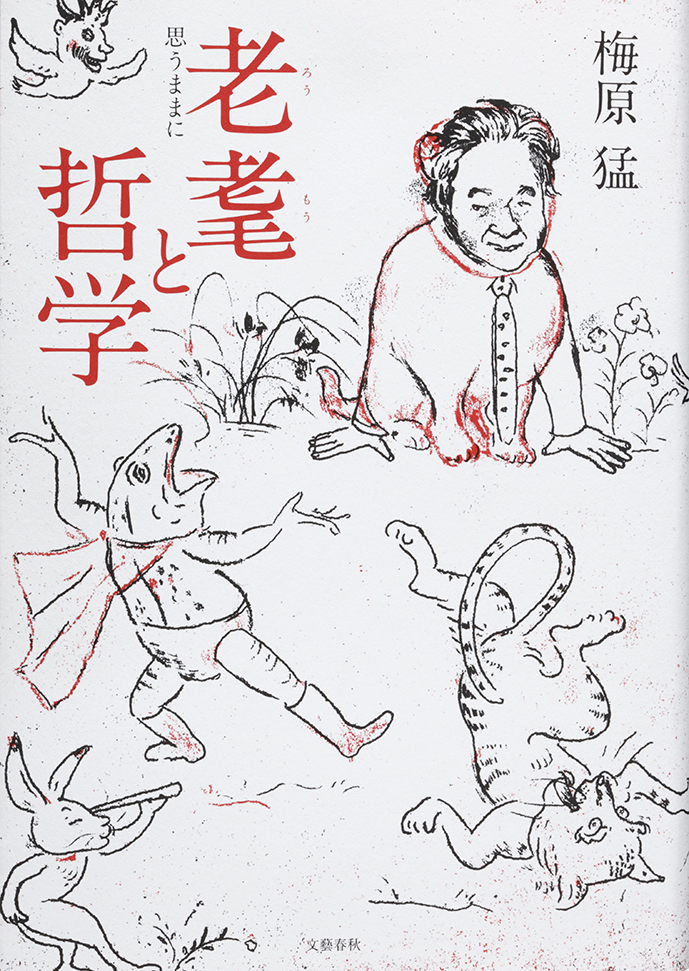 梅原 猛
老耄と
ろうもう
哲学
思うままに
文藝春秋